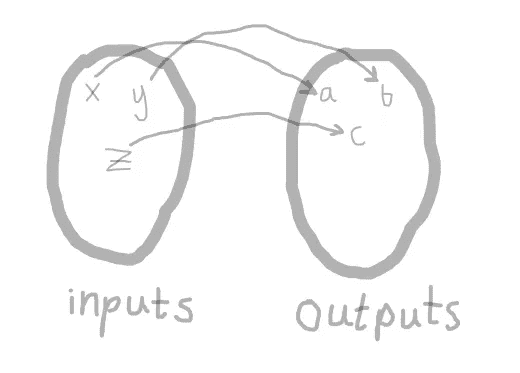 x y a b
z c
inputs outputs